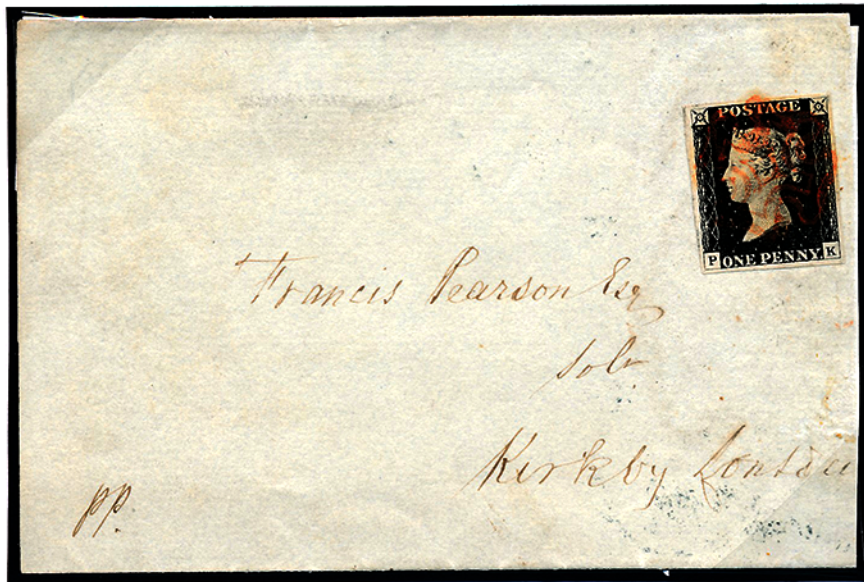 POSTAGE
P ONE PENNY K
Francis Pearson Esq
solr
Kirkby Lonsda
pp.